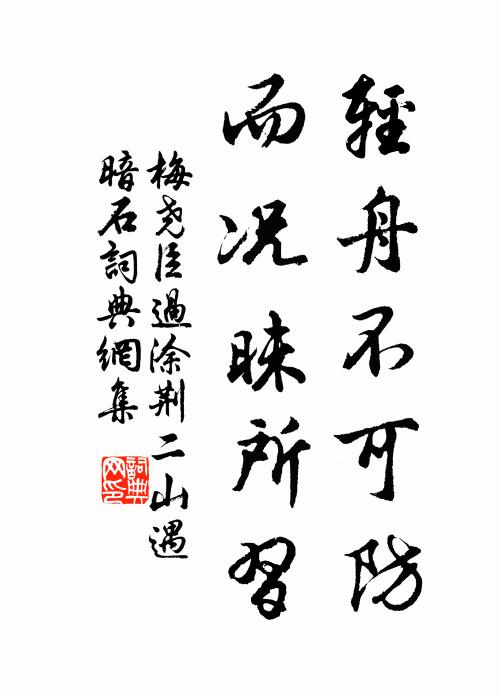 輕舟不可防
而况昧所習
梅尧臣過涂荆二山遇
暗石詞典網集
詞典
网印